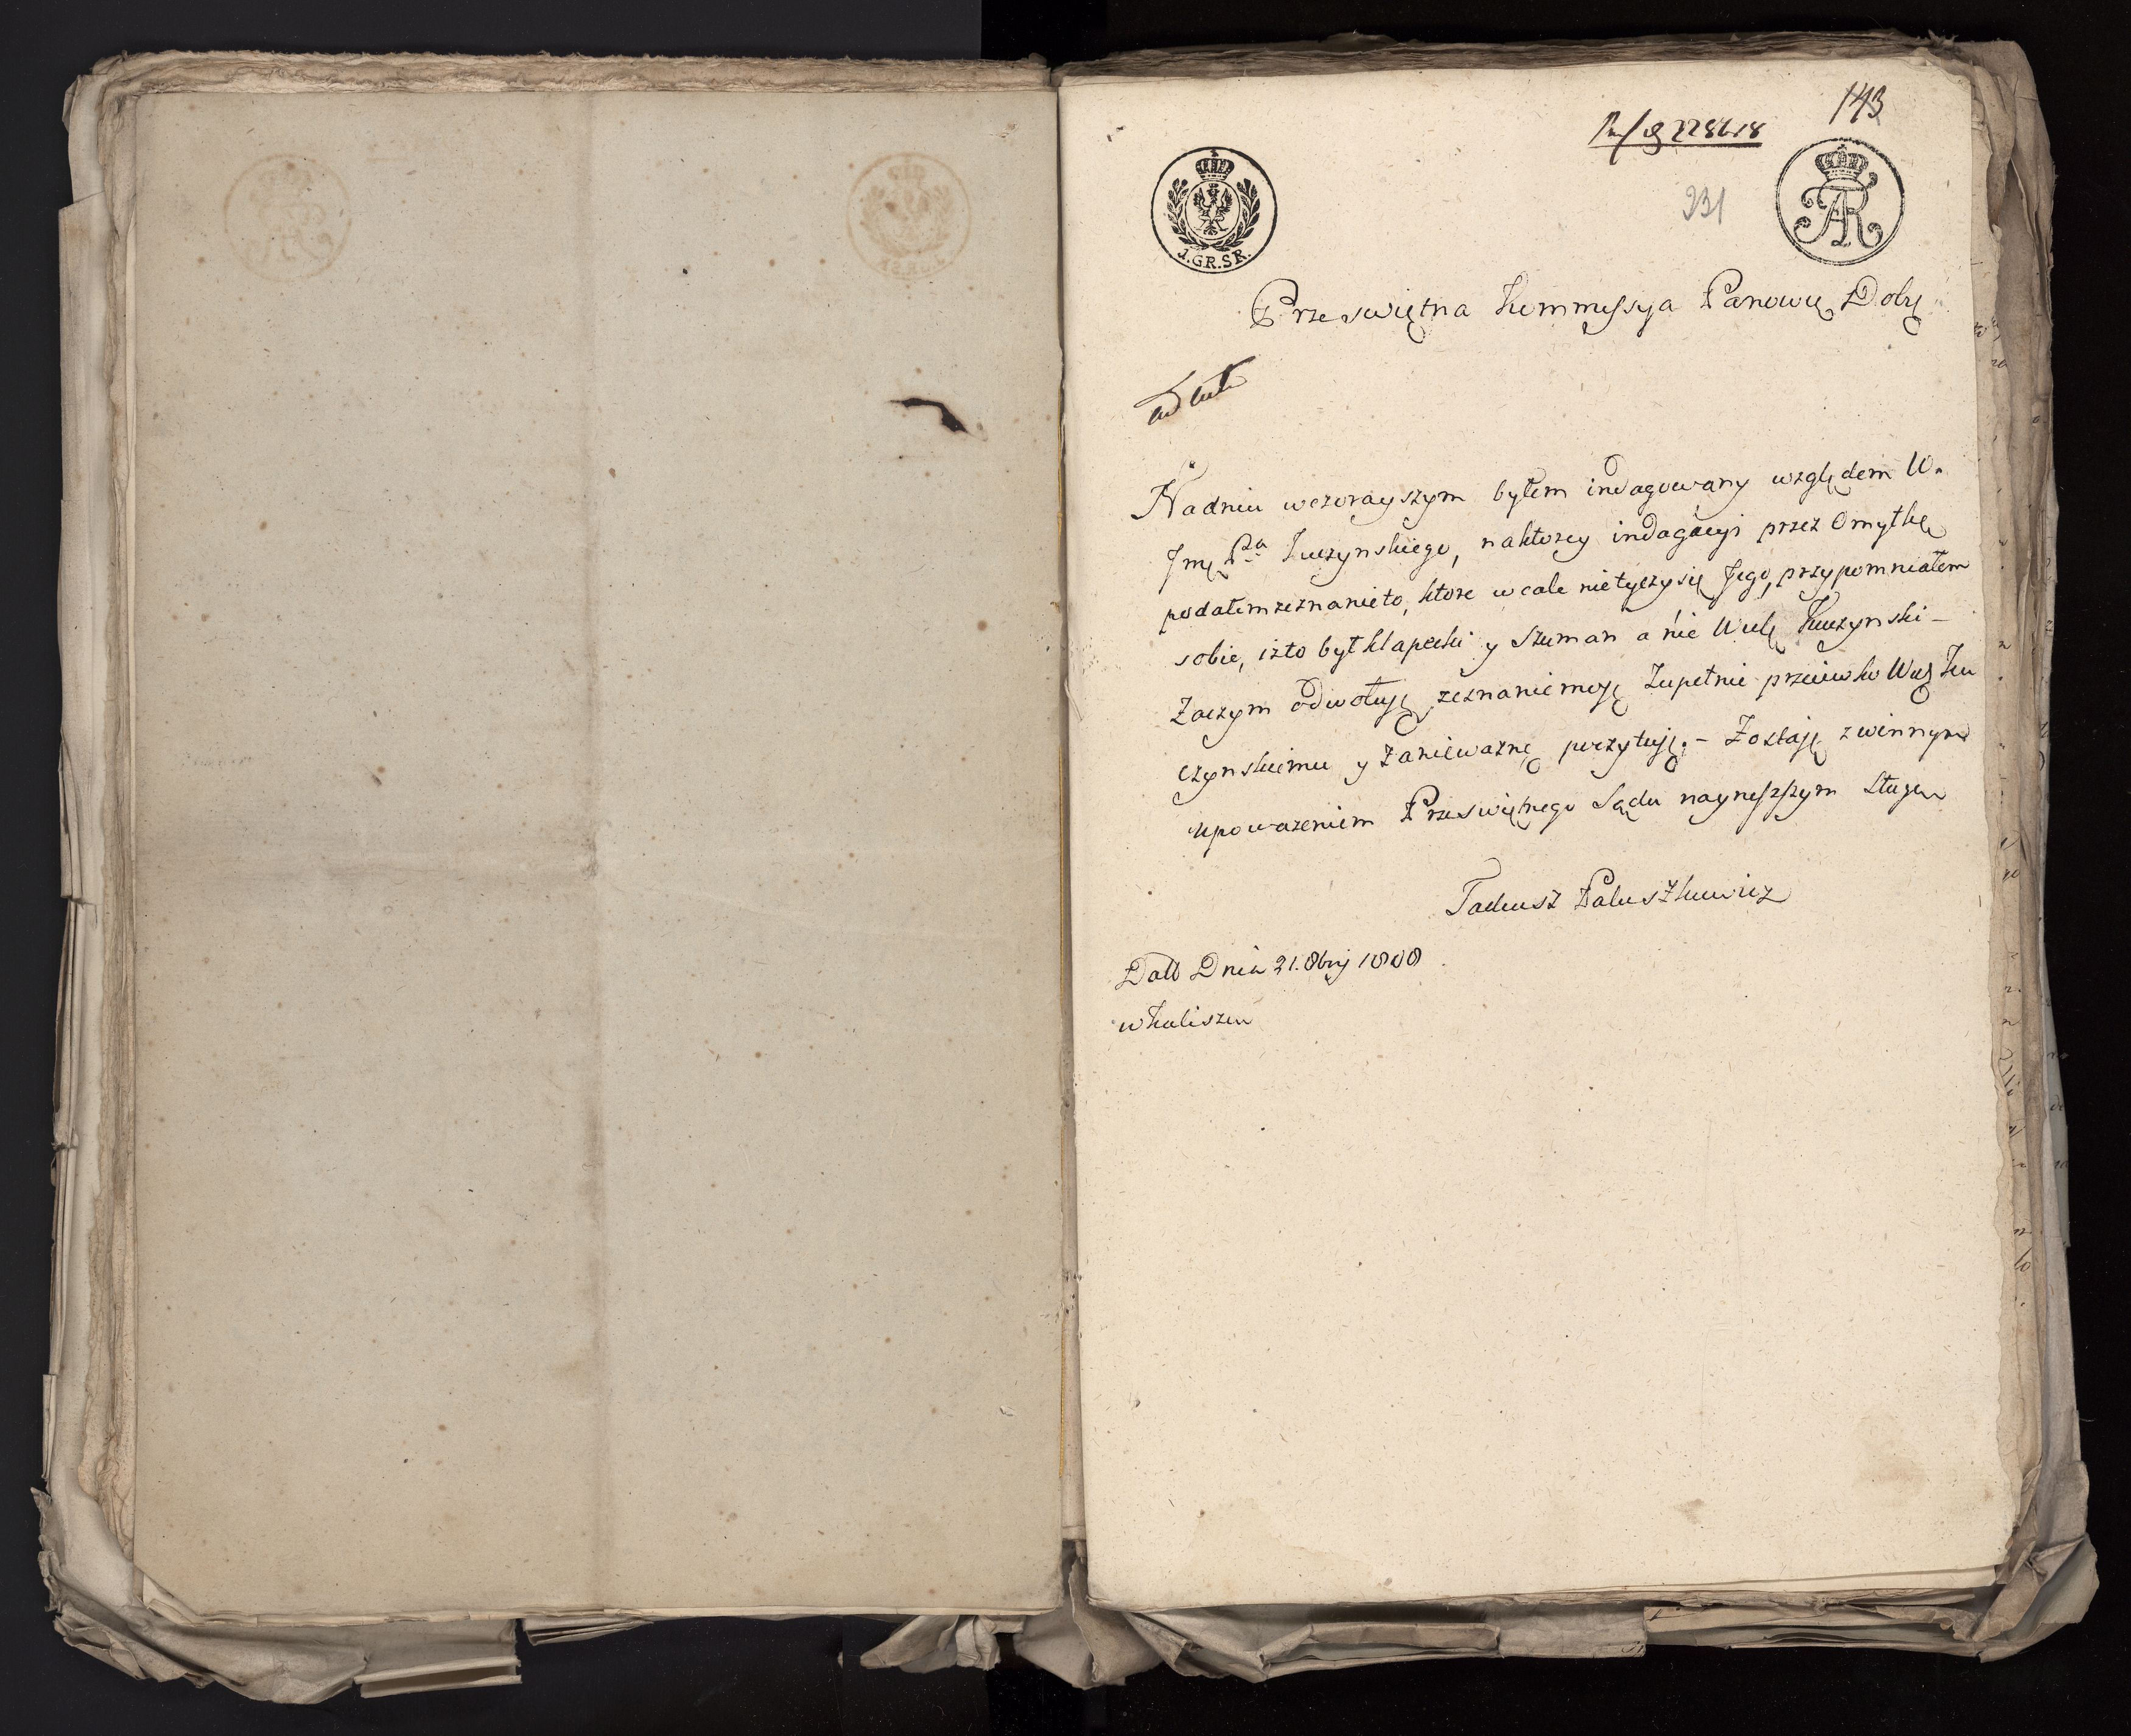 143
231
J.GR.SR.
FAR
Przeswiętna Kommissya Panowie Dobr.
Nadniu wczorayszym byłem indagowany względem W.
Jmę Pa Kuczynskiego, naktorey indagacyi przez Omytkę
podałem zeznanie to, ktore wcale nietyczy się Jego, przypomniałem
sobie, iż to był Kłapecki y Szuman a nie Wielę Kuczynski –
Zaczym odwołuję zeznanie moje zupełnie przeciwko Wielę Ku
czynskiemu y zanieważne poczytuję. – Zostaję z winnym
upoważeniem Przeswiętnego Sądu naynisszym Sługą
Tadeusz Paluszkiewicz
Datt Dnia 21. 8bris 1808
w Kaliszu